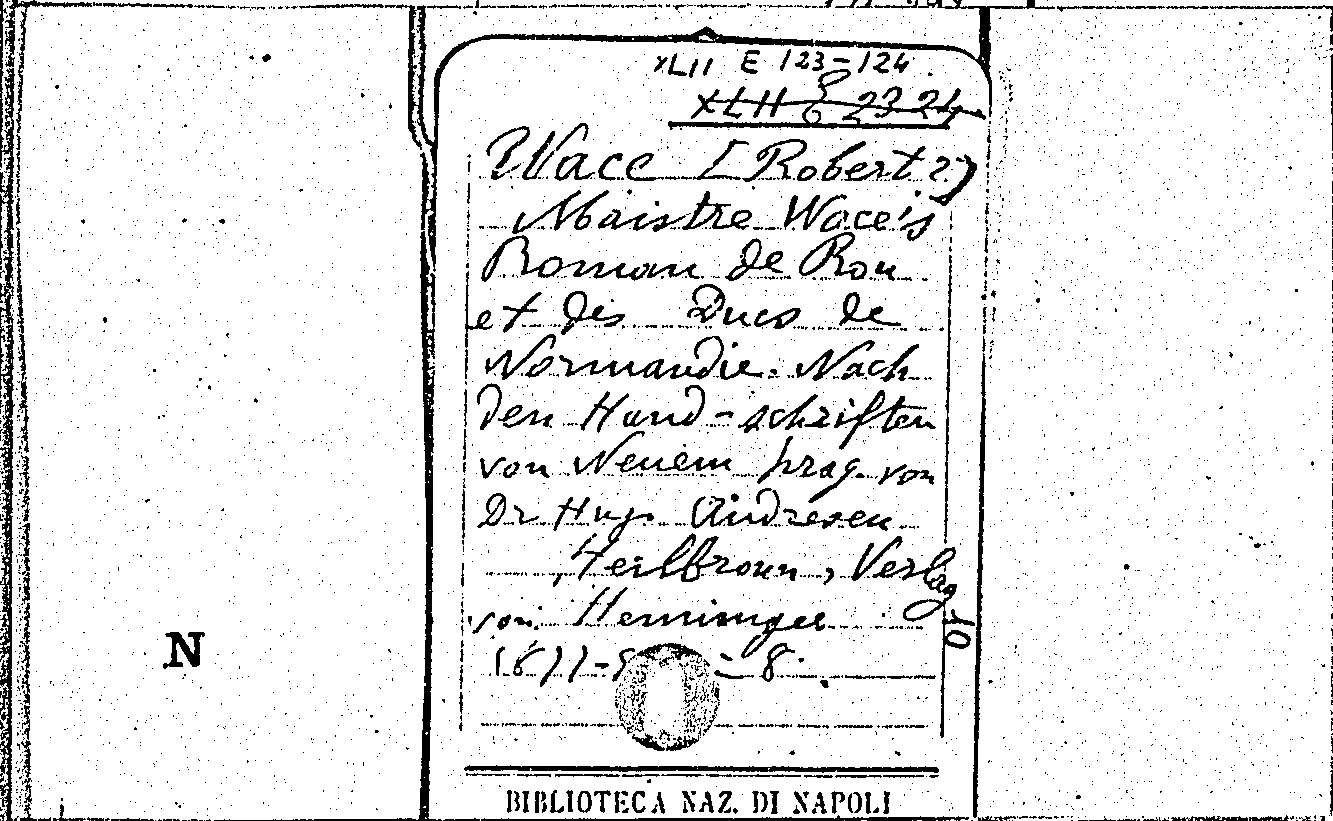 XLII E 123-124
XLII E 23 24
Wace [Robert?]
Maistre Wace's
Roman de Rou
et des Ducs de
Normandie. Nach
den Hand-schriften
von Neuem hrag. von
Dr Hugo Andresen
Heilbronn, Verlag
von Henninger
in-8.
N
BIBLIOTECA NAZ. DI NAPOLI